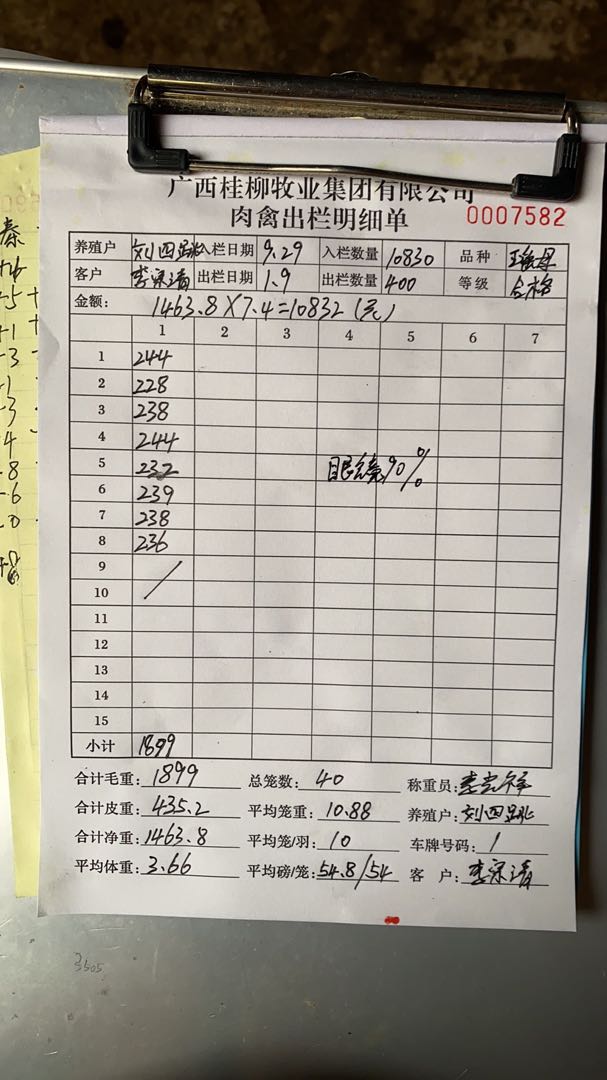 广西桂柳牧业集团有限公司
肉禽出栏明细单 0007582
养殖户 刘四 入栏日期 9.29 入栏数量 10830 品种
客户 李 清 出栏日期 1.9 出栏数量 400 等级 合格
金额: 1463.8×7.4=10832(元)
1 2 3 4 5 6 7
1 244
2 228
3 238
4 244
5 232 眼镜90%
6 239
7 238
8 236
9
10
11
12
13
14
15
小计 1899
合计毛重: 1899 总笼数: 40 称重员:
合计皮重: 435.2 平均笼重: 10.88 养殖户: 刘四
合计净重: 1463.8 平均笼/羽: 10 车牌号码: 1
平均体重: 3.66 平均磅/笼: 54.8/54 客 户: 李 清